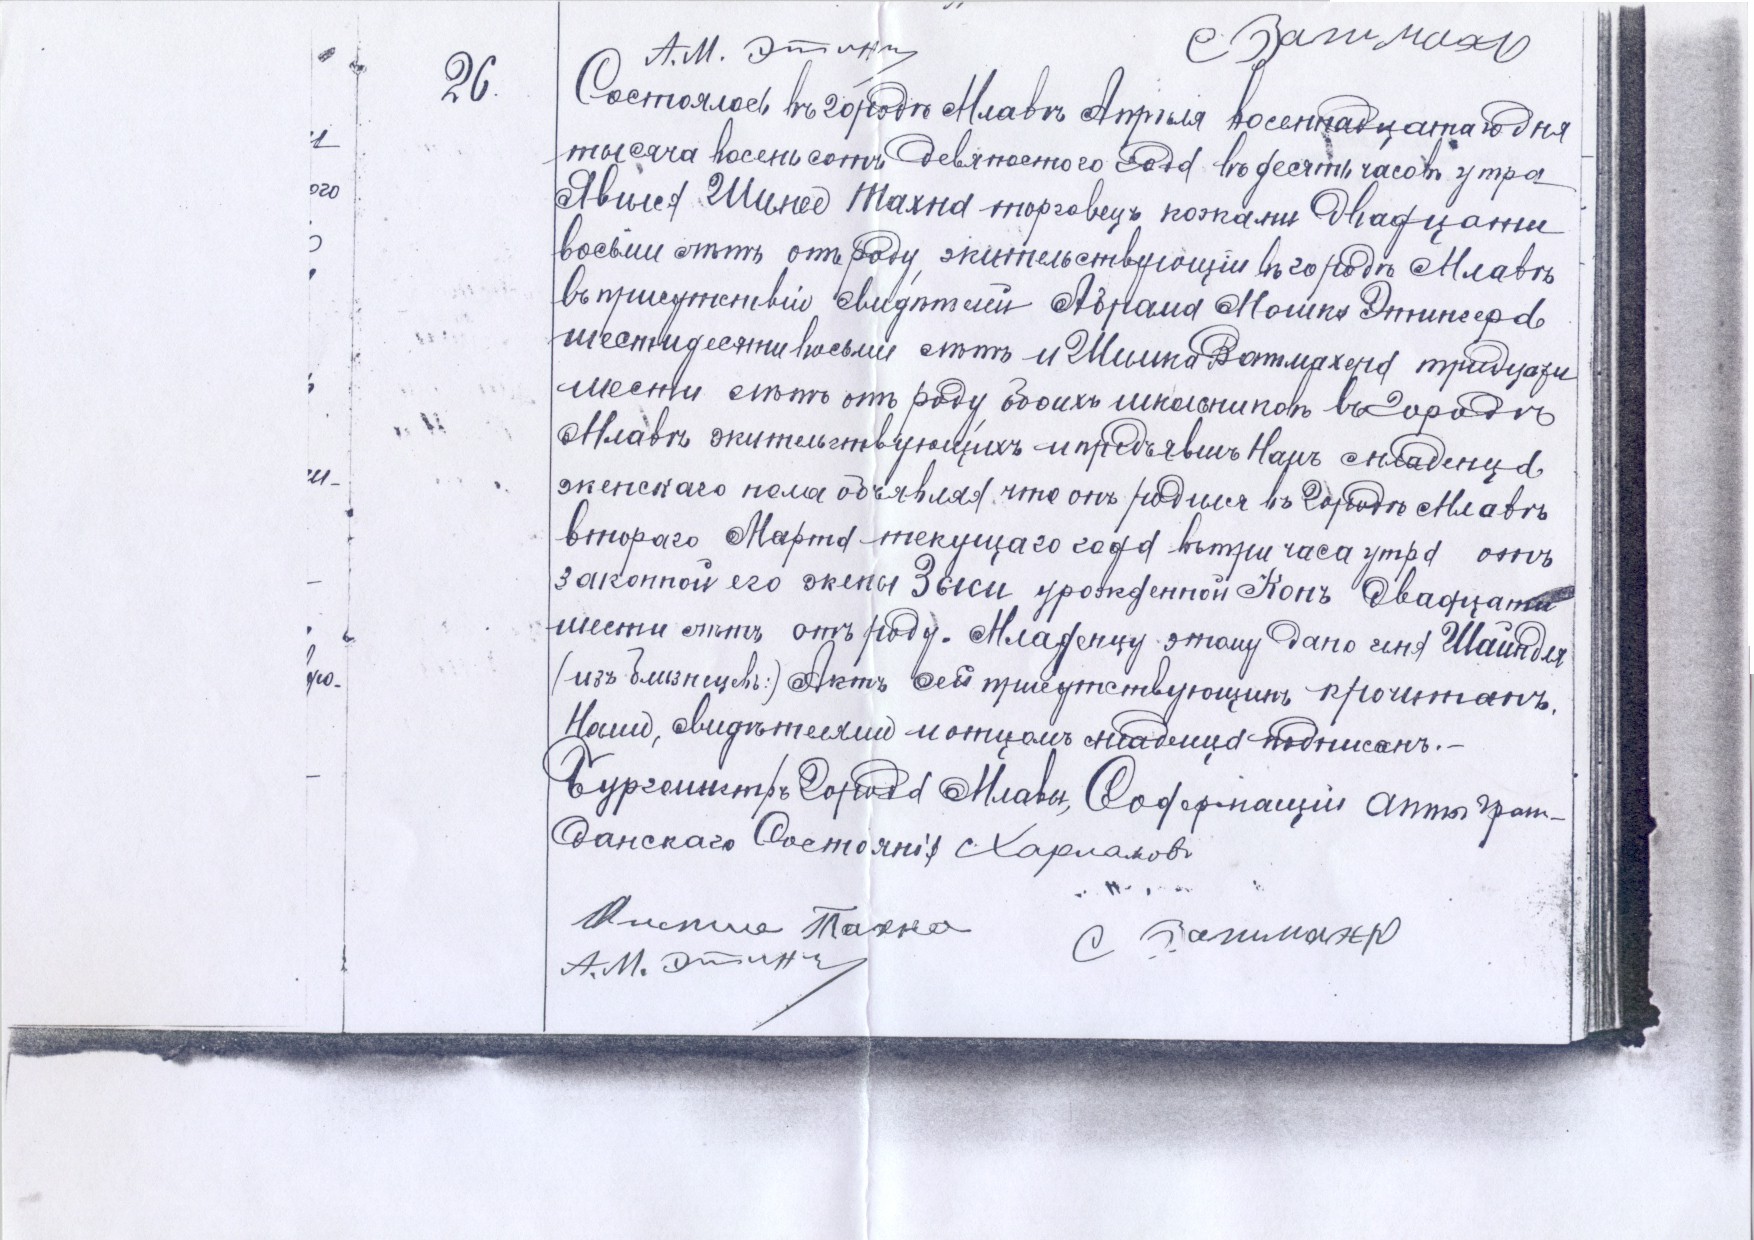 А.М. Этинг С Ватмахер
26.
Состоялось въ городѣ Млавѣ Апрѣля восемнадцатаго дня
тысяча восемьсотъ девяностого года въ десять часовъ утра
Явился Тахна торговецъ кожами двадцати
восьми лѣтъ отъ роду, жительствующій въ городѣ Млавѣ
въ присутствіи свидѣтелей Абрама Мошка Этингера
шестидесяти восьми лѣтъ и Шимка Ватмахера тридцати
шести лѣтъ отъ роду обоихъ школьниковъ въ городѣ
Млавѣ жительствующихъ и предъявилъ Намъ младенца
женскаго пола объявляя что онъ родился въ городѣ Млавѣ
втораго Марта текущаго года въ три часа утра отъ
законной его жены Зыси урожденной Конъ двадцати
шести лѣтъ отъ роду. Младенцу этому дано имя Шайндля
(изъ близнецовъ:) Актъ сей присутствующимъ прочитанъ,
Нами, свидѣтелями и отцомъ младенца подписанъ.-
Бургомистръ Города Млавы, Содержащій акты Граж-
данскаго Состоянія Харламовъ
Тахна С Ватмахер
А.М. Этинг